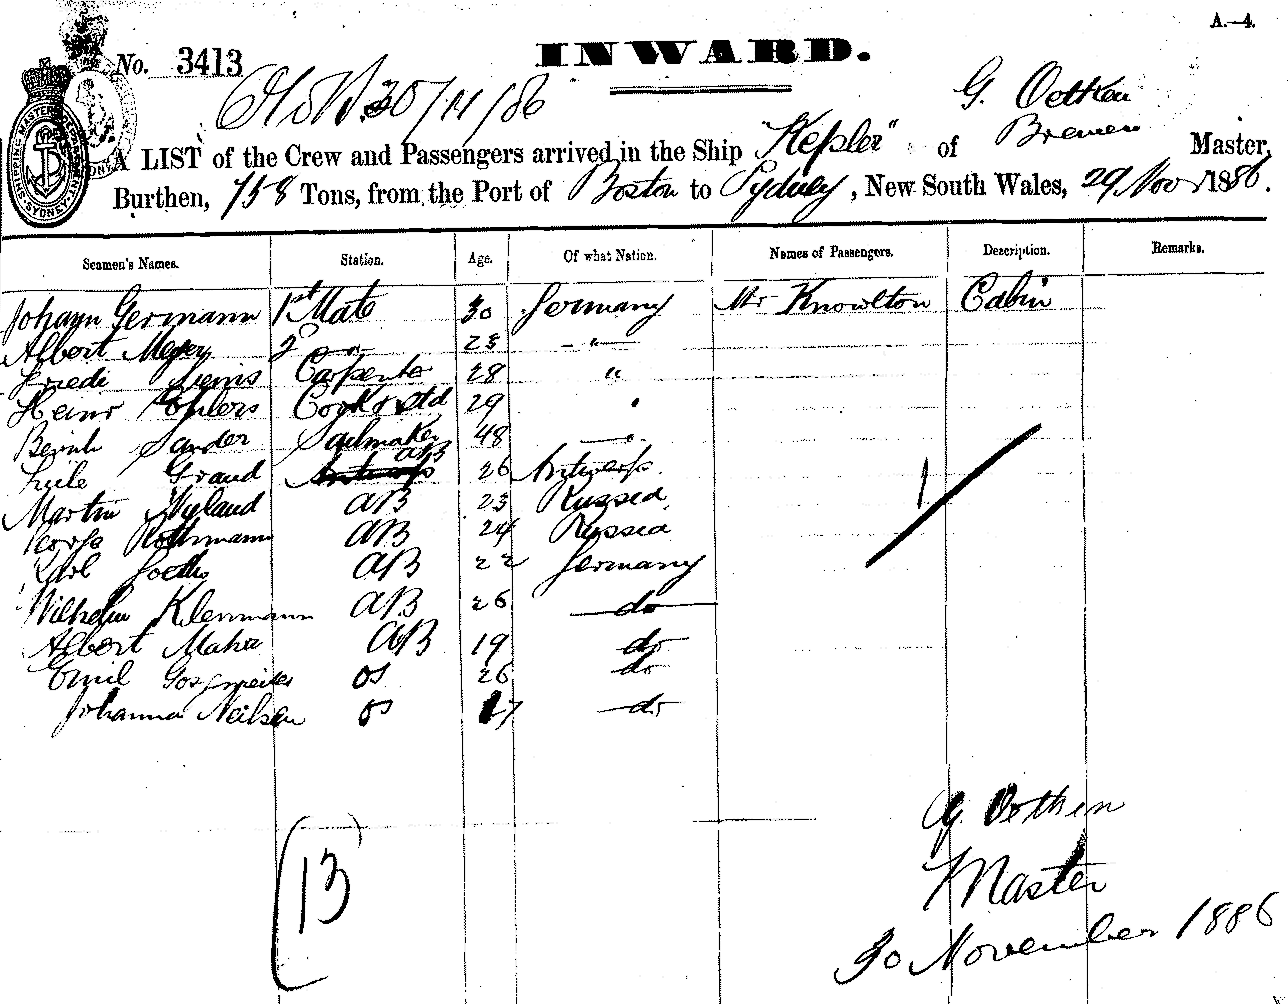 A.—4.
No. 3413
INWARD.
30/11/86
G. Oetken
A LIST of the Crew and Passengers arrived in the Ship "Kepler" of Bremen Master,
Burthen, 758 Tons, from the Port of Boston to Sydney, New South Wales, 29 Novr 1886.
Seamen's Names. Station. Age. Of what Nation. Names of Passengers. Description. Remarks.
Johann Germann 1st Mate 30 Germany Mr Knowlton Cabin
Albert Meyer 2 23 "
Siems Carpenter 28 "
Heinr Ehlers Cook & Std 29 "
Bernh Sander Sailmaker 48 "
Graud AB 26 Antwerp
Martin Nyland AB 23 Russia
Rothmann AB 24 Russia
Karl AB 22 Germany
Wilhelm Klenmann AB 26 do
Albert AB 19 do
Emil OS 26 do
Johanna Neilsen OS 17 do
13
1
G. Oetken
Master
30 November 1886